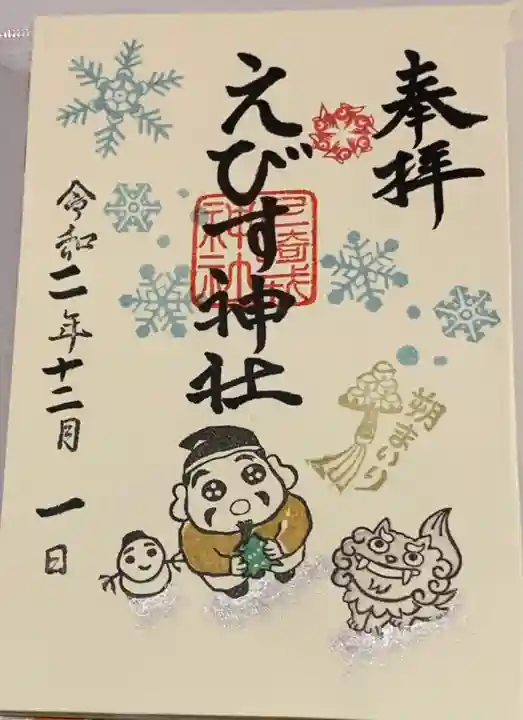 奉拝
えびす神社
朔まいり
令和二年十二月一日